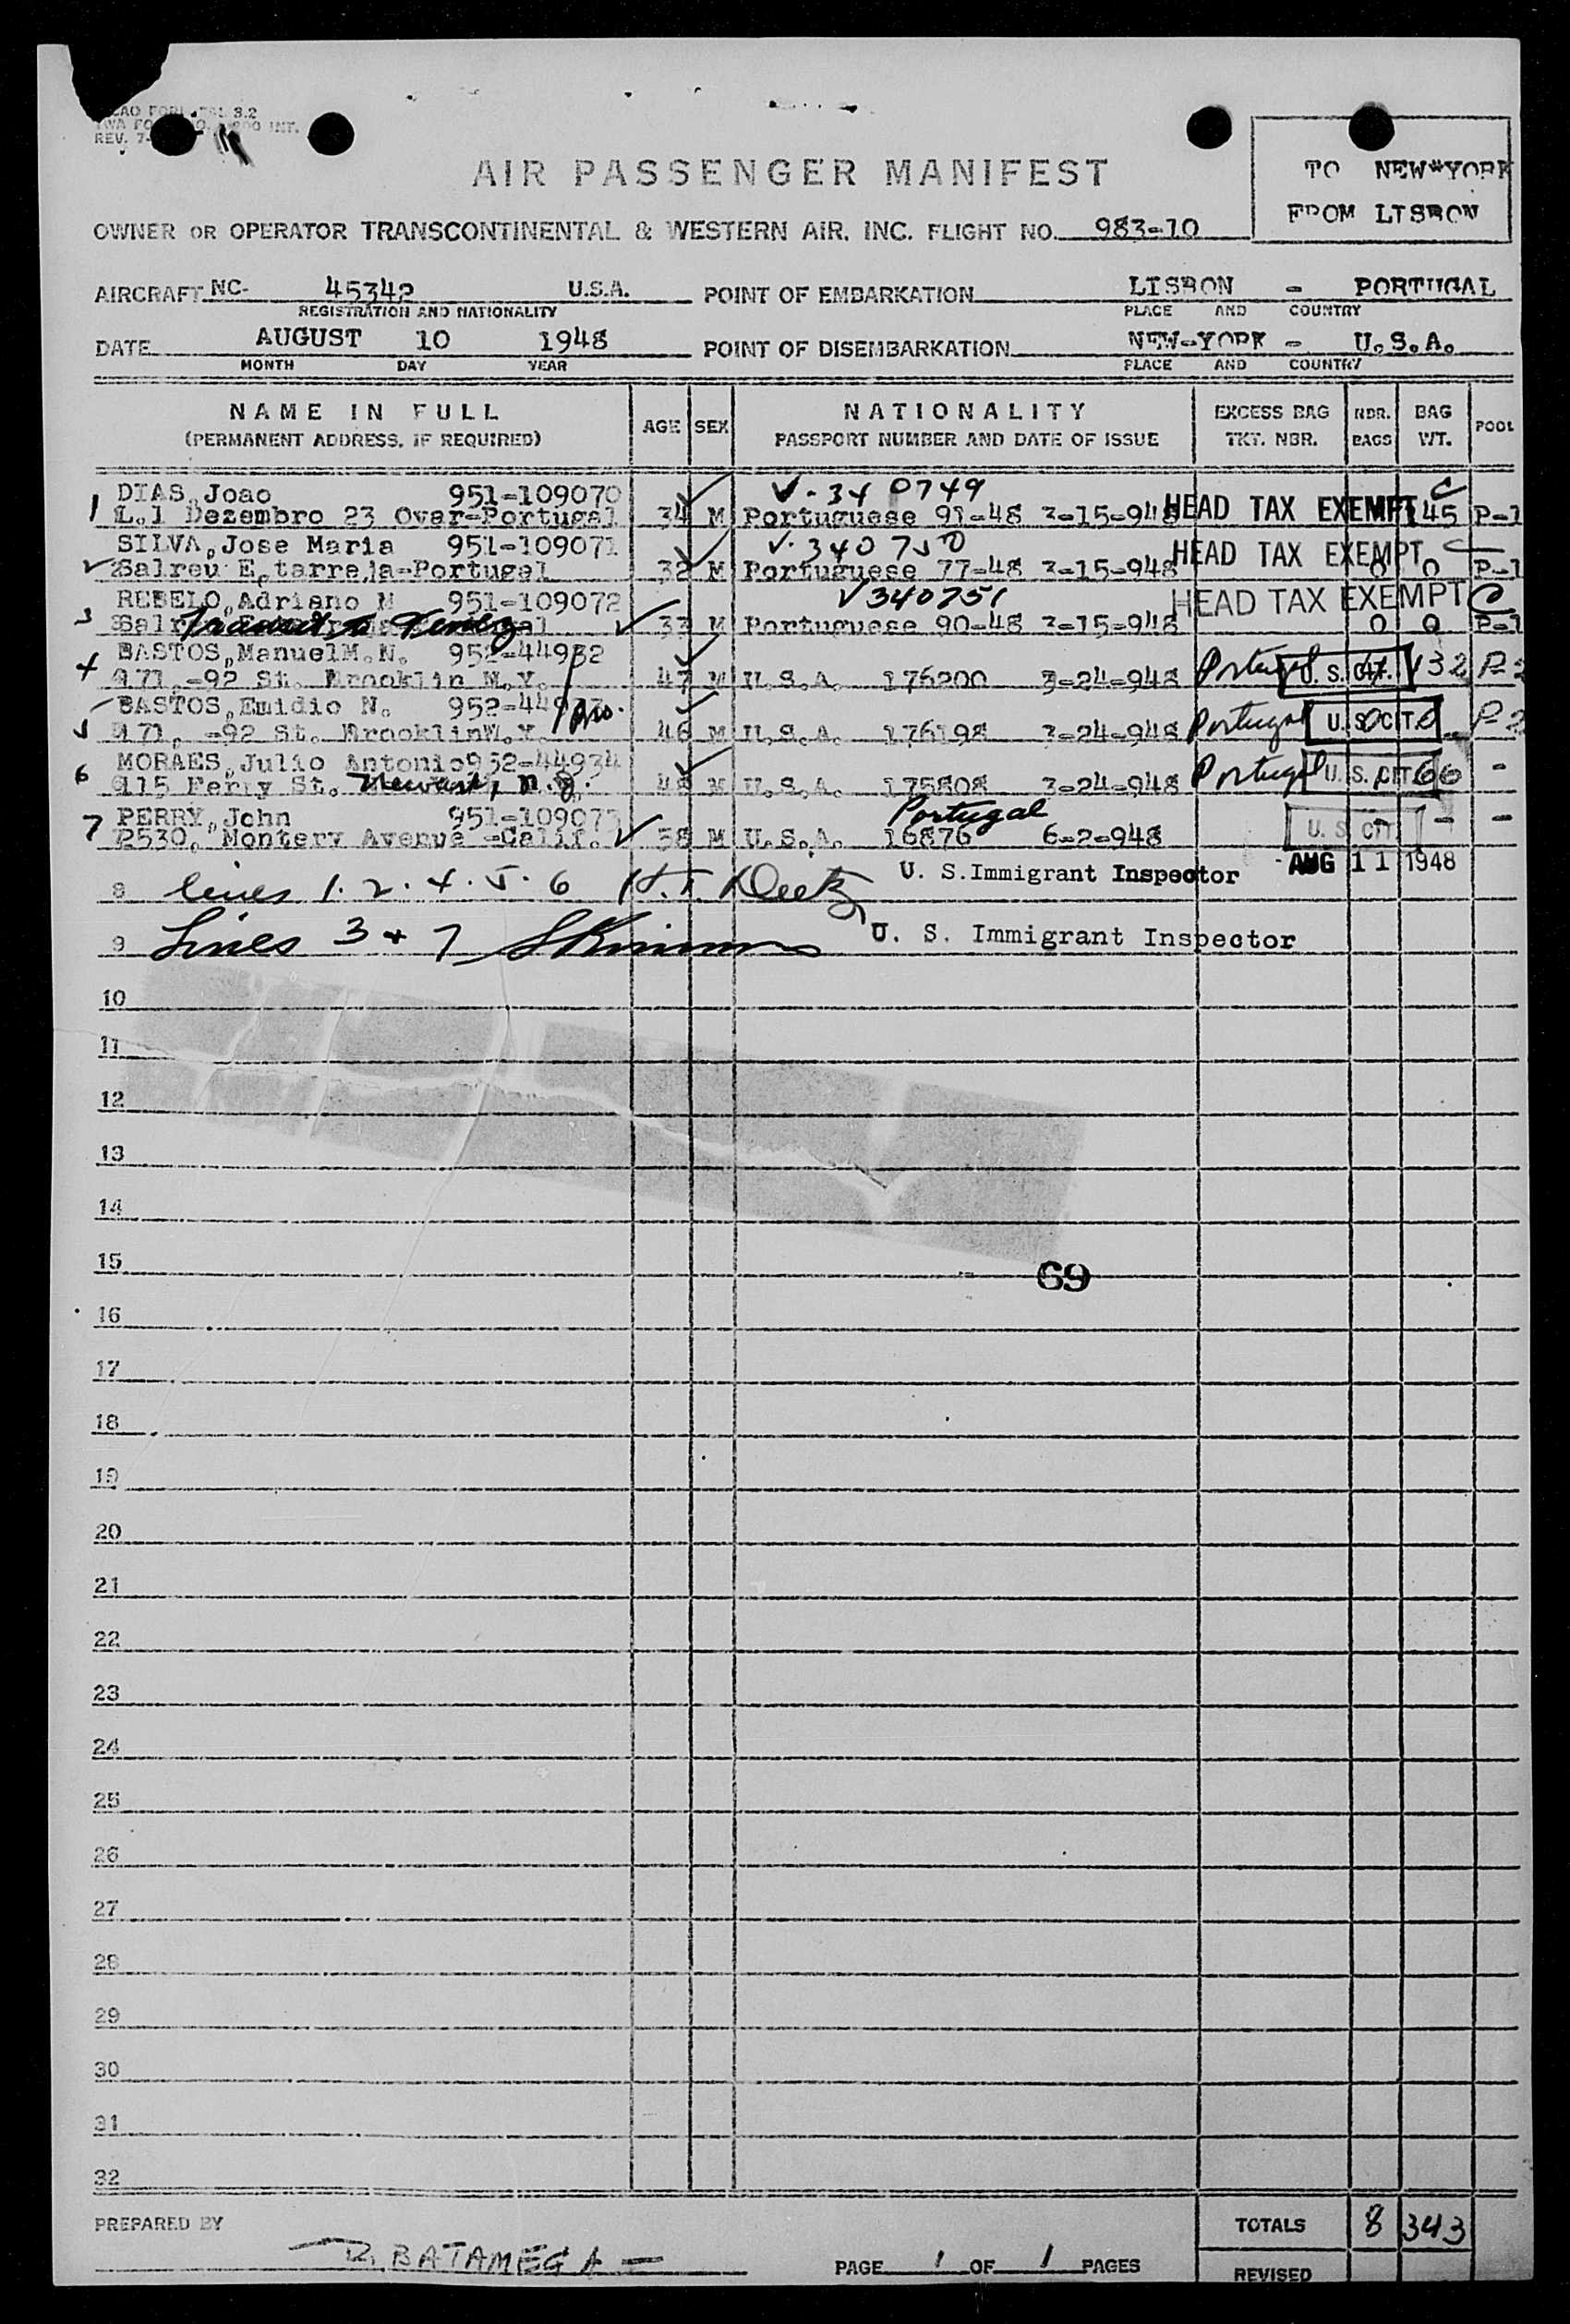 REV. 7-
AIR PASSENGER MANIFEST
TO NEW*YORK
FROM LISBON
OWNER OR OPERATOR TRANSCONTINENTAL & WESTERN AIR, INC. FLIGHT NO. 983-10
AIRCRAFT NC- 45342 U.S.A. POINT OF EMBARKATION LISBON - PORTUGAL
REGISTRATION AND NATIONALITY PLACE AND COUNTRY
DATE AUGUST 10 1948 POINT OF DISEMBARKATION NEW-YORK - U.S.A.
MONTH DAY YEAR PLACE AND COUNTRY
NAME IN FULL AGE SEX NATIONALITY EXCESS BAG NBR. BAG POOL
(PERMANENT ADDRESS, IF REQUIRED) PASSPORT NUMBER AND DATE OF ISSUE TKT. NBR. BAGS WT.
DIAS,Joao 951-109070 V-340749
1 L.1 Dezembro 23 Ovar-Portugal 34 M Portuguese 91-48 3-15-948 HEAD TAX EXEMPT 145 P-1
SILVA,Jose Maria 951-109071 V.340750
2 Salreu E,tarreja-Portugal 32 M Portuguese 77-48 3-15-948 HEAD TAX EXEMPT 0 0 P-1
REBELO,Adriano M 951-109072 V340751
3 Transit to 33 M Portuguese 90-48 3-15-948 HEAD TAX EXEMPT C 0 0 P-1
BASTOS,ManuelM.N. 952-44932
4 171,-92 St. Brooklin N.Y. 47 M U.S.A. 176200 3-24-948 Portugal U. S. CIT. 132 P-2
BASTOS,Emidio N. 952-44933
5 171, -92 St. BrooklinN.Y. 46 M U.S.A. 176198 3-24-948 Portugal U. S. CIT. 0 P-2
MORAES,Julio Antonio952-44934
6 115 Ferry St. Newark, N.J. 48 M U.S.A. 175808 3-24-948 Portugal U. S. CIT. 66 -
PERRY,John 951-109073 Portugal
7 2530, Montery Avenue -Calif. 58 M U.S.A. 16876 6-2-948 U. S. CIT. - - -
8 lines 1. 2. 4. 5. 6 U. S.Immigrant Inspector AUG 11 1948
9 Lines 3 + 7 U. S. Immigrant Inspector
10
11
12
13
14
15
69
16
17
18
19
20
21
22
23
24
25
26
27
28
29
30
31
32
PREPARED BY TOTALS 8 343
BATAMEGA PAGE 1 OF 1 PAGES
REVISED